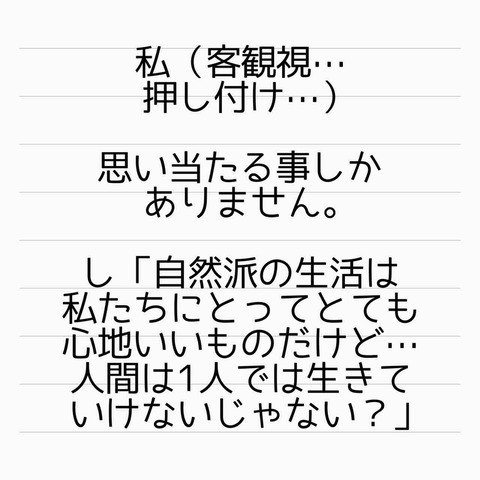 私（客観視…
押し付け…）
思い当たる事しか
ありません。
し「自然派の生活は
私たちにとってとても
心地いいものだけど…
人間は1人では生きて
いけないじゃない？」